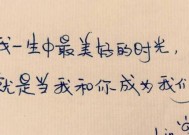 我一生中最美好的时光,
就是当我和你成为我们